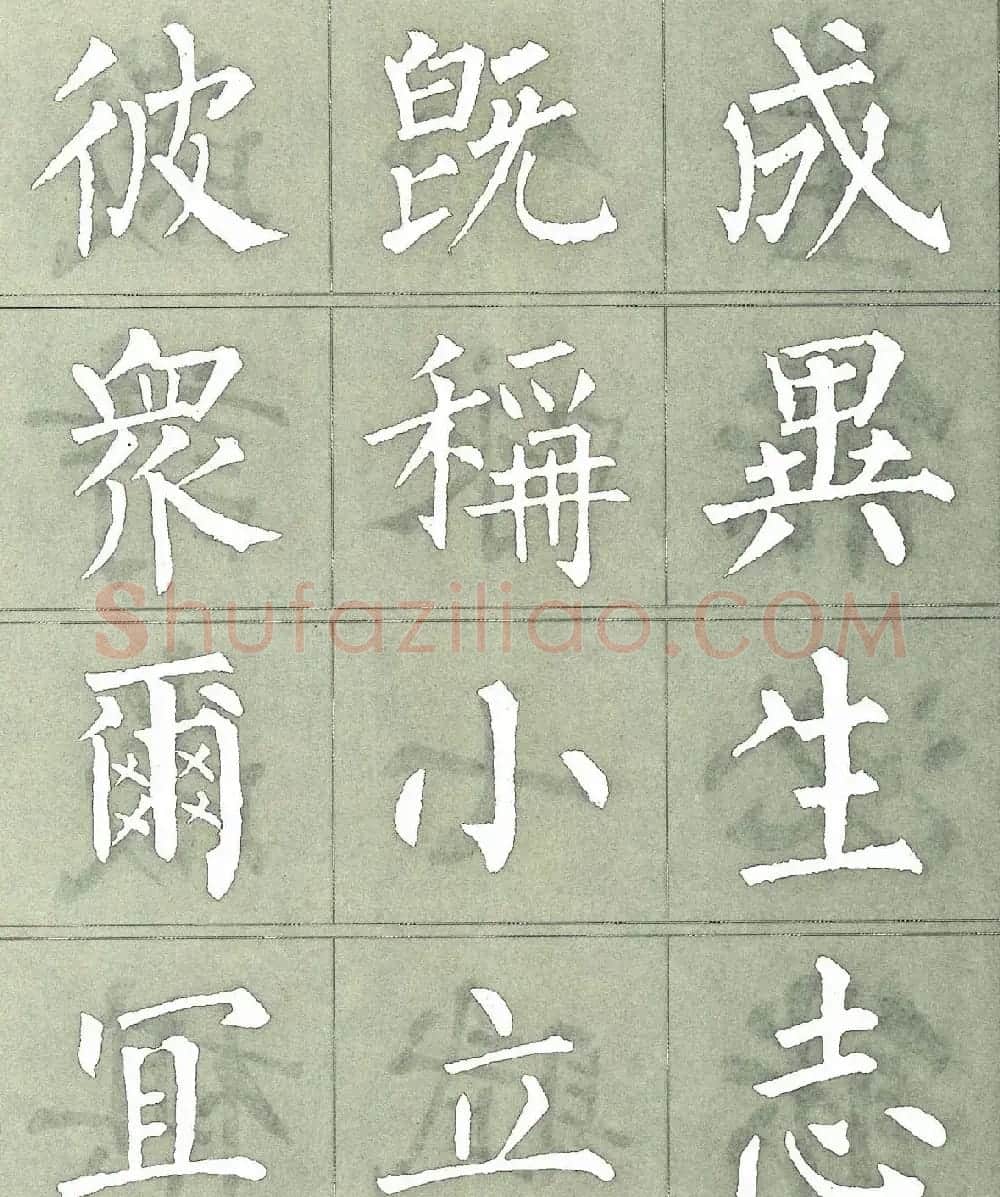 彼既成
眾稱異
爾小生
冝立志
Shufaziliao.COM